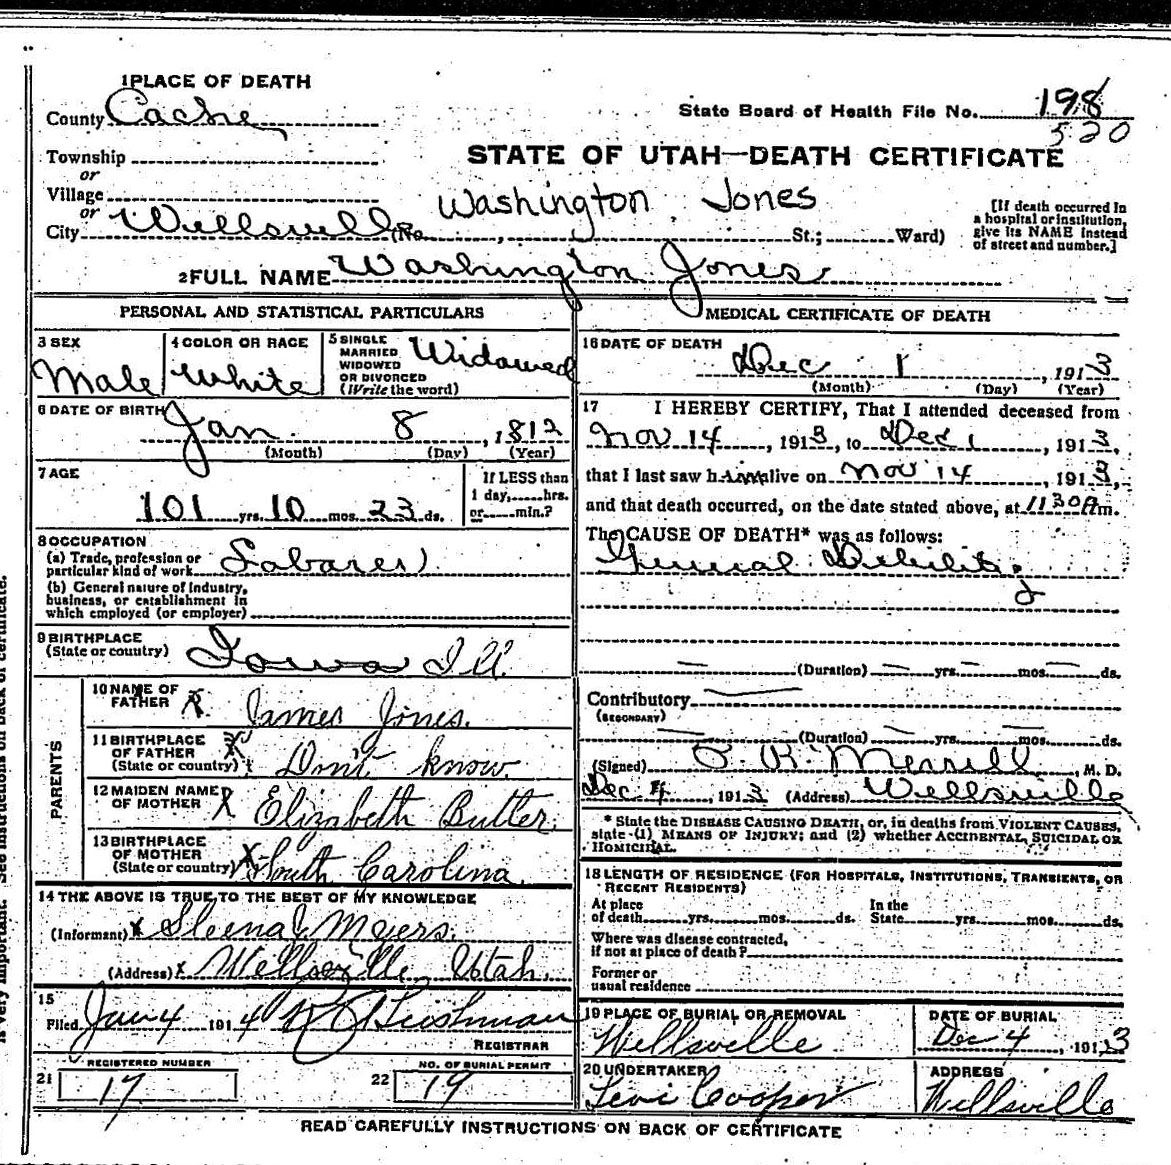 1 PLACE OF DEATH
County Cache
State Board of Health File No. 198
520
Township
or
STATE OF UTAH—DEATH CERTIFICATE
Village
or
Washington Jones
City Wellsville (No. , St.; Ward)
[If death occurred in
a hospital or institution,
give its NAME instead
of street and number.]
2 FULL NAME Washington Jones
PERSONAL AND STATISTICAL PARTICULARS
3 SEX
Male
4 COLOR OR RACE
White
5 SINGLE
MARRIED
WIDOWED
OR DIVORCED
(Write the word)
Widowed
6 DATE OF BIRTH
Jan. 8, 1812
(Month) (Day) (Year)
7 AGE
101 yrs. 10 mos. 23 ds.
If LESS than
1 day, hrs.
or min.?
8 OCCUPATION
(a) Trade, profession or
particular kind of work Laborer
(b) General nature of industry,
business, or establishment in
which employed (or employer)
9 BIRTHPLACE
(State or country) Iowa Ill.
PARENTS
10 NAME OF
FATHER X James Jones.
11 BIRTHPLACE
OF FATHER
(State or country) X Don't know.
12 MAIDEN NAME
OF MOTHER X Elizabeth Butler.
13 BIRTHPLACE
OF MOTHER
(State or country) X South Carolina.
14 THE ABOVE IS TRUE TO THE BEST OF MY KNOWLEDGE
(Informant) X Myers.
(Address) X Wellsville Utah.
15
Filed Jan 4 1914 Leishman
REGISTRAR
REGISTERED NUMBER
21 17
NO. OF BURIAL PERMIT
22 19
MEDICAL CERTIFICATE OF DEATH
16 DATE OF DEATH
Dec 1, 1913
(Month) (Day) (Year)
17 I HEREBY CERTIFY, That I attended deceased from
Nov 14, 1913, to Dec 1, 1913,
that I last saw him alive on Nov 14, 1913,
and that death occurred, on the date stated above, at 1130 A m.
The CAUSE OF DEATH* was as follows:
General Debility
(Duration) yrs. mos. ds.
Contributory
(SECONDARY)
(Duration) yrs. mos. ds.
(Signed) Merrill, M. D.
Dec 4, 1913 (Address) Wellsville
* State the DISEASE CAUSING DEATH, or, in deaths from VIOLENT CAUSES,
state (1) MEANS OF INJURY; and (2) whether ACCIDENTAL, SUICIDAL OR
HOMICIDAL.
18 LENGTH OF RESIDENCE (FOR HOSPITALS, INSTITUTIONS, TRANSIENTS, OR
RECENT RESIDENTS)
At place
of death yrs. mos. ds.
In the
State yrs. mos. ds.
Where was disease contracted,
if not at place of death?
Former or
usual residence
19 PLACE OF BURIAL OR REMOVAL
Wellsville
DATE OF BURIAL
Dec 4, 1913
20 UNDERTAKER
Levi Cooper
ADDRESS
Wellsville
READ CAREFULLY INSTRUCTIONS ON BACK OF CERTIFICATE
is very important. See instructions on back of certificate.